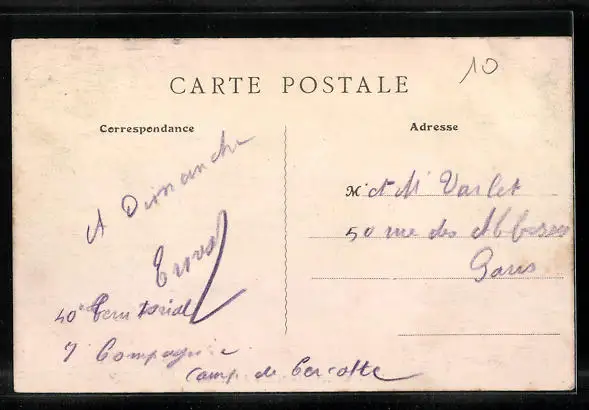 CARTE POSTALE
10
Correspondance
Adresse
A Dimanche
40e Territorial
7 Compagnie
Camp de Cercotte
M et Me Varlet
50 rue des Abbesses
Paris